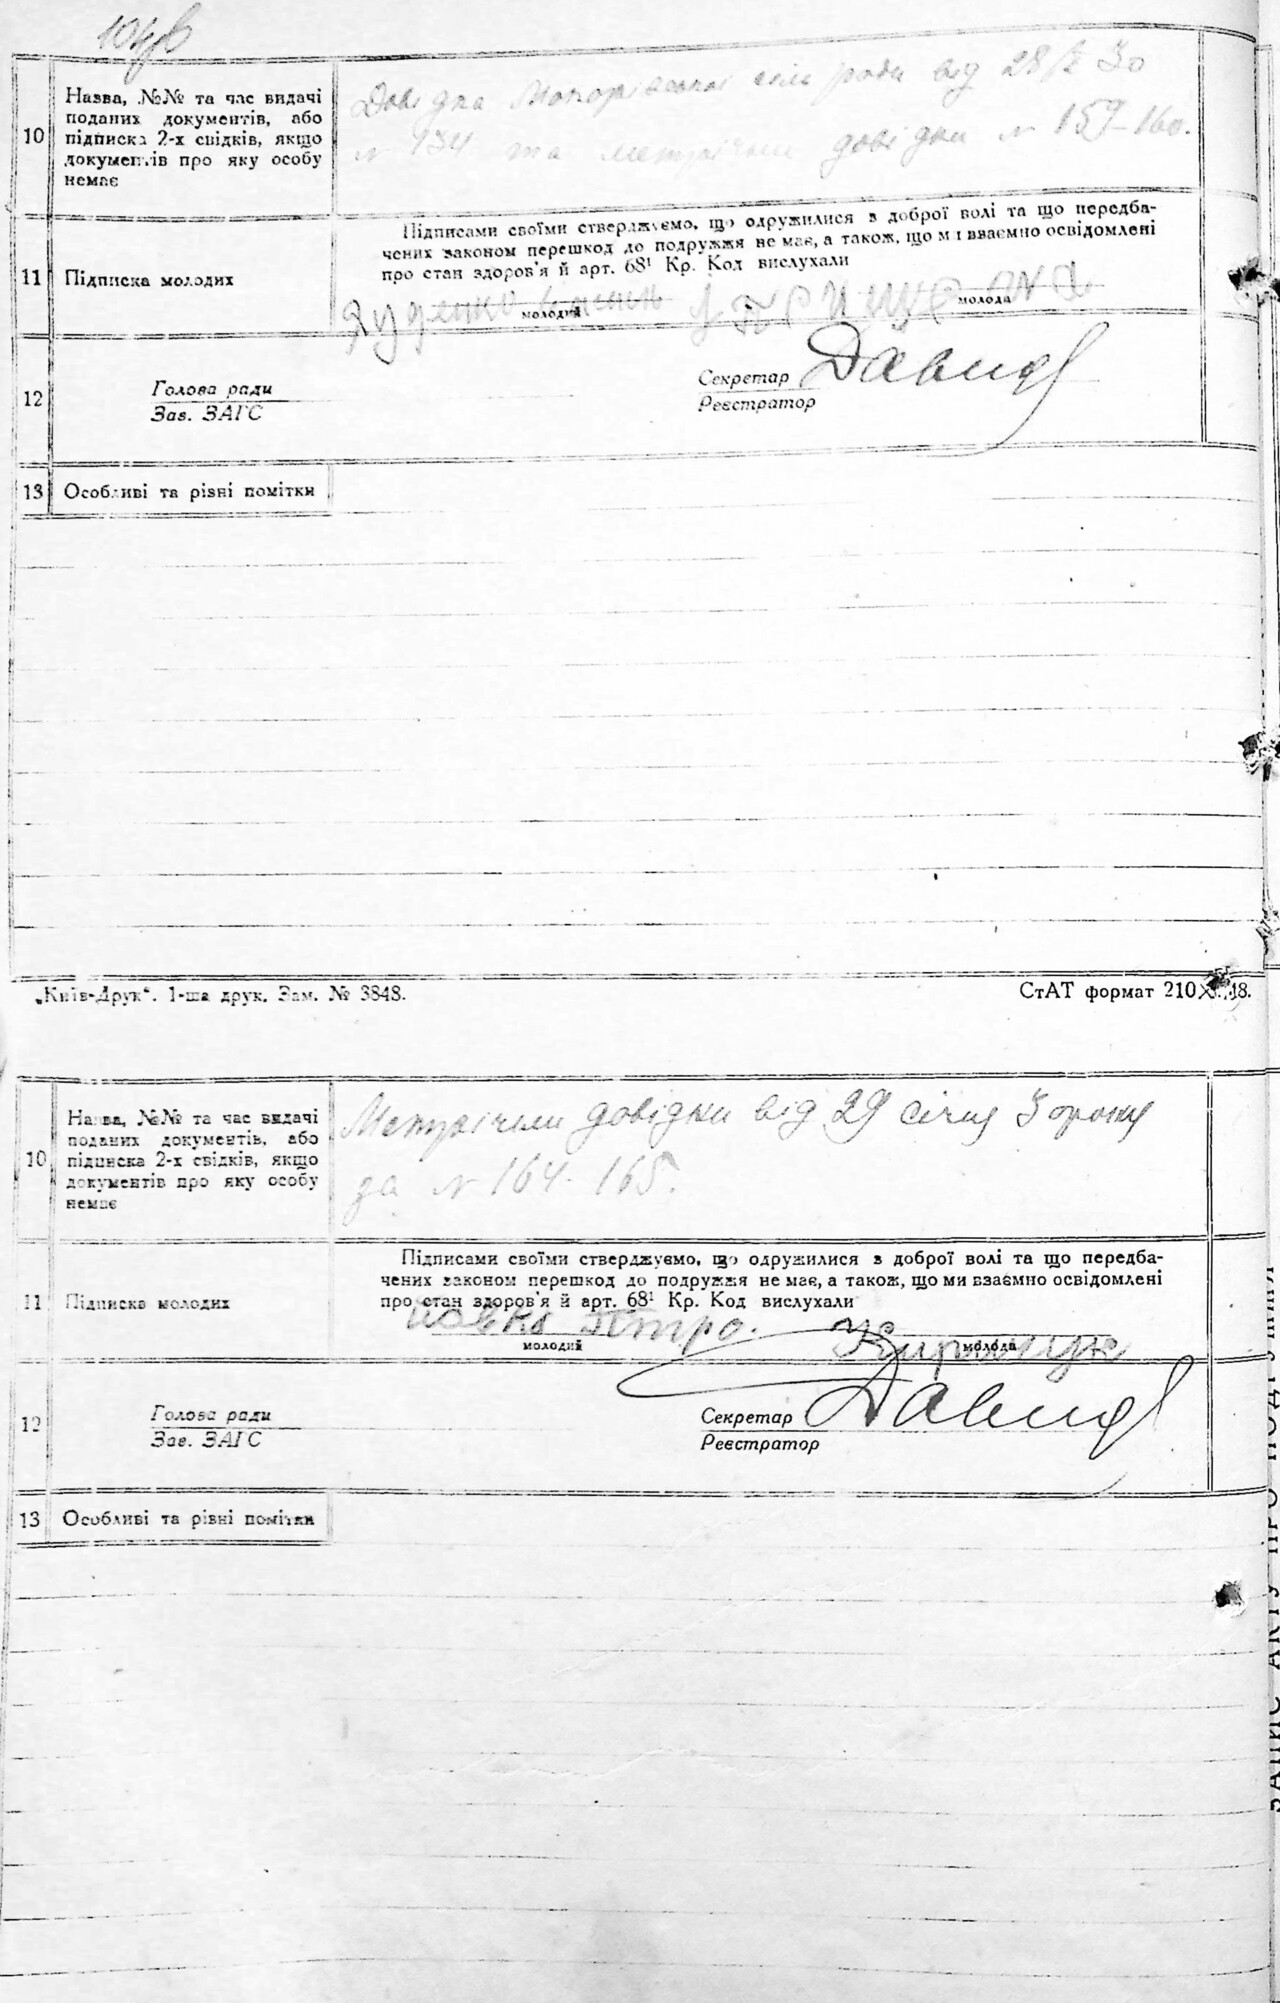 10
Назва, №№ та час видачі
поданих документів, або
підписка 2-х свідків, якщо
документів про яку особу
немає
Довідка сіль ради від 28/I 30
№ 134 та метричні довідки № 159-160.
11
Підписка молодих
Підписами своїми стверджуємо, що одружилися з доброї волі та що передба-
чених законом перешкод до подружжя не має, а також, що ми взаємно освідомлені
про стан здоров'я й арт. 68¹ Кр. Код вислухали
молодий
молода
12
Голова ради
Зав. ЗАГС
Секретар Давид
Реєстратор
13
Особливі та рівні помітки
„Київ-Друк“. 1-ша друк. Зам. № 3848.
СтАТ формат 210
10
Назва, №№ та час видачі
поданих документів, або
підписка 2-х свідків, якщо
документів про яку особу
немає
Метричні довідки від 29 січня 30 року
за № 164-165.
11
Підписка молодих
Підписами своїми стверджуємо, що одружилися з доброї волі та що передба-
чених законом перешкод до подружжя не має, а також, що ми взаємно освідомлені
про стан здоров'я й арт. 68¹ Кр. Код вислухали
молодий
молода
12
Голова ради
Зав. ЗАГС
Секретар Давид
Реєстратор
13
Особливі та рівні помітки